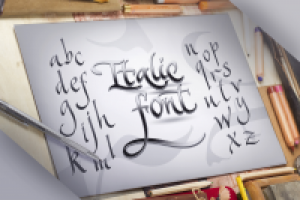 abc
def
g
ijh
k lm
Italic
font
nop
qrs
utv
wy
xz